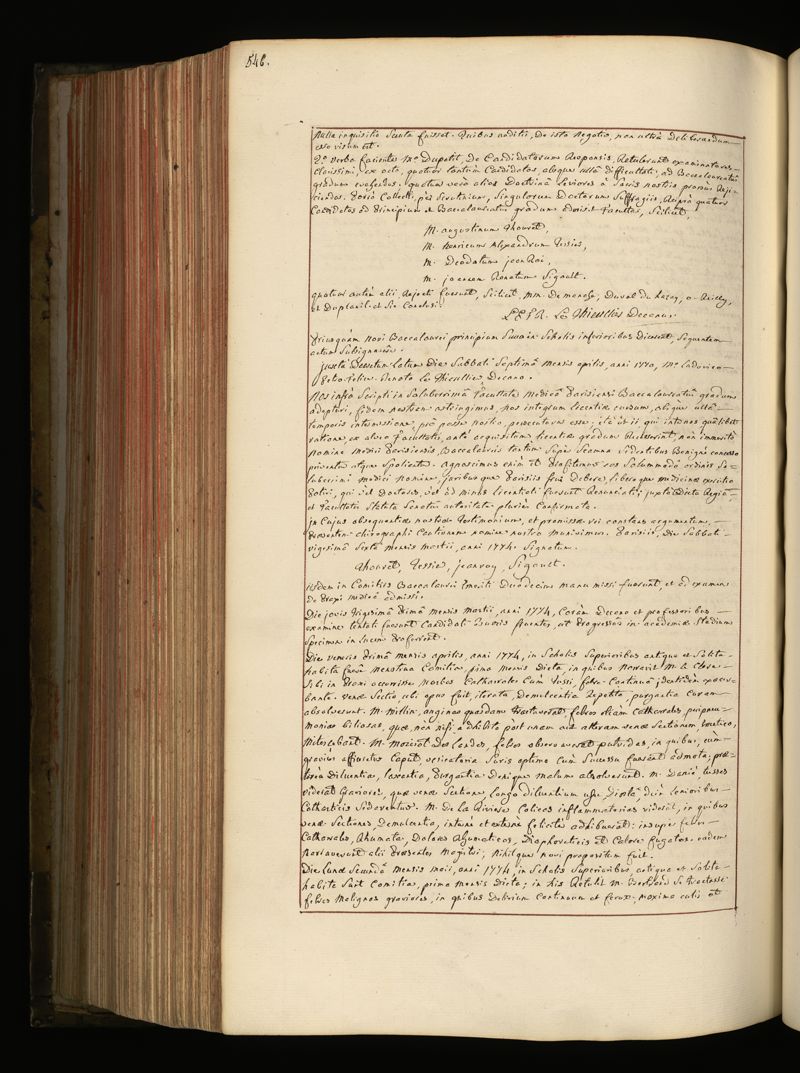 546.
nulla inquisitio facta fuisset. Quibus auditis, de isto negotio, non ultra deliberandum
esse visum est.
2o. verba faciente Mo. Dupetit, de Candidatorum Responsis, Retulerunt examinatores
Clarissimi, ex octo, quatuor tantum Candidatos, absque ulla difficultate, ad Baccalaureatus
gradum evehendos. quatuor vero alios Doctrina leviores a Sacris nostris prorsus Reji-
ciendos. Porro Collectis per Scrutinium, Singulorum Doctorum Suffragiis, Supra quatuor
Candidatos ad Principium et Baccalaureatus gradum admisit Facultas, Scilicet,
M. augustinum Thouret,
M. henricum Alexandrum Tessier,
M. Deodatum jeanRoi,
M. joannem Renatum Sigault.
quatuor autem alii Rejecti fuerunt, Scilicet, MM. de manose, Duval du hazey, o-Reilly,
et Duplanil. et Sic Conclusi.
L.P.F.R. Le Thieullier Decanus.
Priusquam novi Baccalaurei principium Suum in Scholis inferioribus dicerent, Sequentem
actum Subsignarunt.
juxta Decretum Latum Die Sabbati Septima mensis aprilis, anni 1770, Mo. Ludovico-
Petro-Felice-Renato Le Thieullier Decano.
Nos infra Scripti in Saluberrima Facultate Medica Parisiensi Baccalaureatus gradum
adepturi, fidem nostram astringimus, nos integrum licentiae cursum, absque ulla
temporis intermissione, pro posse nostro, persecuturos esse; ita ut ii qui intenos qualibet
ratione, ex alma Facultate, ante acquisitum licentiae gradum Recesserint, non immerito
nomine medici Parisiensis, Baccalaureis tantum Super Scamna Sedentibus Benigne concesso
priventur atque Spolientur. Agnoscimus enim et Profitemur eos Solummodo ordinis Sa-
luberrimi medici nomine, juribusque Parisiis frui debere, liberoque medicinae exercitio
Potiri, qui vel Doctores, vel ad minus licentiati fuerunt Renunciati; juxta Edicta Regia,
et Facultatis Statuta Senatus autoritate pluries Confirmata.
in Cujus obsequentiae nostrae testimonium, et promissae rei constans argumentum,
Praesentem chirographi Cautionem nomine nostro munivimus. Parisiis, die Sabbati
vigesima Sexta mensis martii, anni 1774. Signatum.
Thouret, Tessier, jeanroy, Sigault.
iisdem in Comitiis Baccalaurei Emeriti Duodecim manu missi fuerunt, et ad examen
de Praxi medica admissi.
Die jovis trigesima Prima mensis martii, anni 1774, Coram Decano et professoribus
examine tentati fuerunt Candidati Bursis fruentes, ut Progressus in academiae Studium
Specimen in lucem Proferrent.
Die veneris Prima mensis aprilis, anni 1774, in Scholis Superioribus antiquo et Solito
habita fuere menstrua Comitia, prima Mensis Dicta, in quibus narravit M. le Clerc
Sibi in Praxi occurrisse morbos Catharrales Cum Tussi, febre Continua, identidem exacer-
bante. venae Sectio, ubi opus fuit, iterata, demulcentia Repetita, purgantia Curam
absolverunt. M. Millin, anginas quasdam tractaverat, febres etiam Catharrales, peripneu-
monias biliosas, quae, non nisi, adhibito post unam aut alteram venae Sectionem, emetico,
mitescebant. M. moricot des landes, febres observaverat putridas, in quibus, cum
gravius afficeretur Caput, vesicatoria Suris optimo Cum Successu fuerant admota; prae-
terea diluentia, laxantia, Purgantia denique malum absolverunt. M. Danié, tusses
viderat Graviores, quae venae Sectione, longo diluentium usu, Diaeta, dein lenioribus
Catharticis Sedaventur. M. de la Riviere Colicas inflammatorias viderat, in quibus
venae Sectiones, demulcentia, interne et externe feliciter adhibuerat: insuper febres
Catharrales, Rheumata, dolores Rheumaticos, diaphoreticis et Calore fugatos. eadem
narraverunt alii Praesentes Magistri; nihilque novi propositum fuit.
Die lunae Secunda mensis maii, anni 1774, in Scholis Superioribus, antiquo et Solito
habita Sunt Comitia, prima mensis dicta; in his Retulit M. Bertrand Se tractasse
febres Malignas graviores, in quibus delirium Continuum et ferox, maxima cutis et